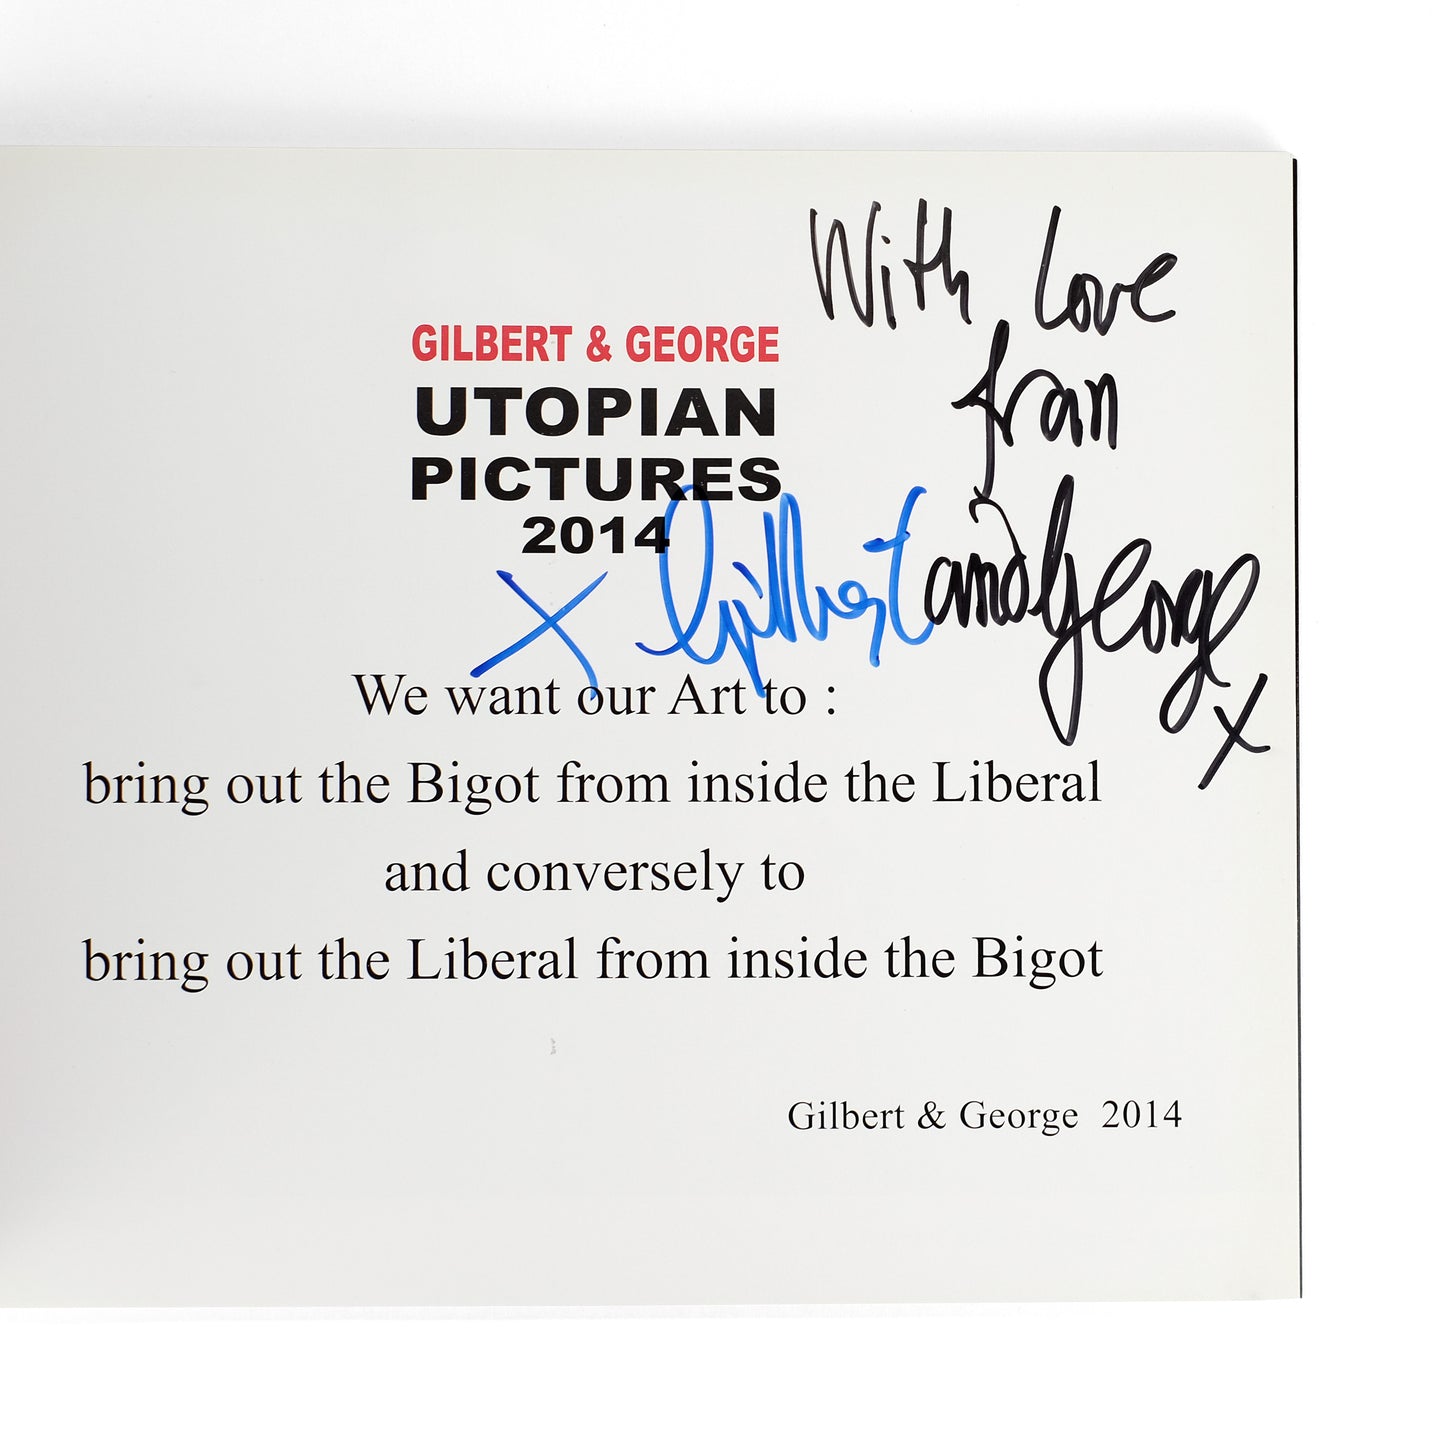 With Love
from
GILBERT & GEORGE
UTOPIAN
PICTURES
2014
x Gilbert and George x
We want our Art to :
bring out the Bigot from inside the Liberal
and conversely to
bring out the Liberal from inside the Bigot
Gilbert & George 2014